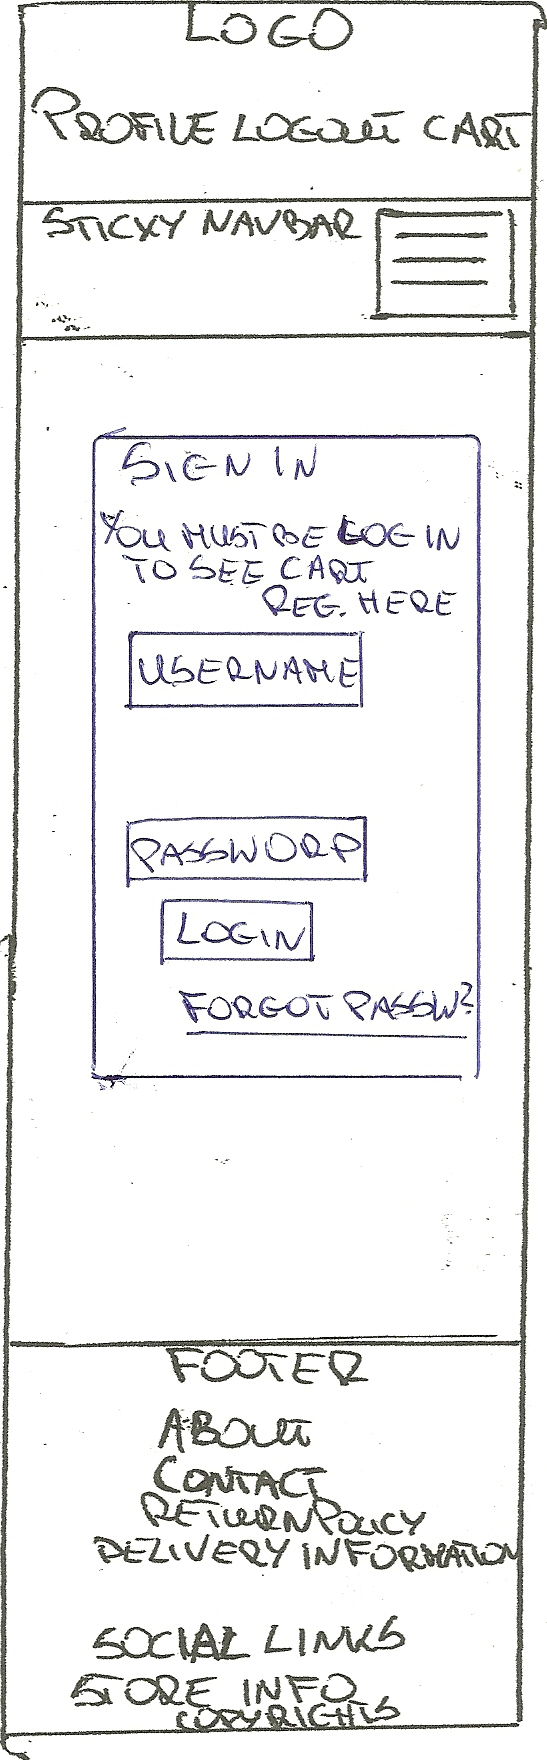 LOGO
PROFILE LOGOUT CART
STICKY NAVBAR
SIGN IN
YOU MUST BE LOG IN
TO SEE CART
REG. HERE
USERNAME
PASSWORD
LOGIN
FORGOT PASSW?
FOOTER
ABOUT
CONTACT
RETURN POLICY
DELIVERY INFORMATION
SOCIAL LINKS
STORE INFO
COPYRIGHTS